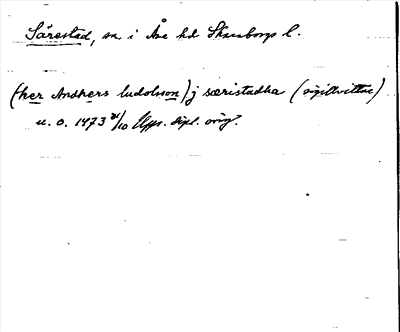 Särestad, sn i Åse hd Skaraborgs l.
(her Anders ludolsson) j særistadha (sigillvittne)
u. o. 1473 21/10 Upps. dipl. orig.